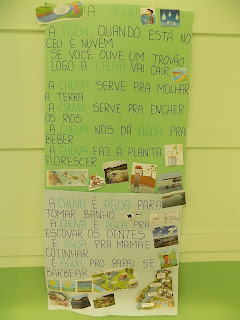 A ÁGUA
A ÁGUA QUANDO ESTÁ NO
CÉU É NUVEM
SE VOCÊ OUVE UM TROVÃO
LOGO A CHUVA VAI CAIR
A CHUVA SERVE PRA MOLHAR
A TERRA
A CHUVA SERVE PRA ENCHER
OS RIOS
A CHUVA NOS DÁ ÁGUA PRA
BEBER
A CHUVA FAZ A PLANTA
FLORESCER
A CHUVA É ÁGUA PARA
TOMAR BANHO
A CHUVA É ÁGUA PRA
ESCOVAR OS DENTES
É ÁGUA PRA MAMÃE
COZINHAR
E ÁGUA PRO PAPAI SE
BARBEAR